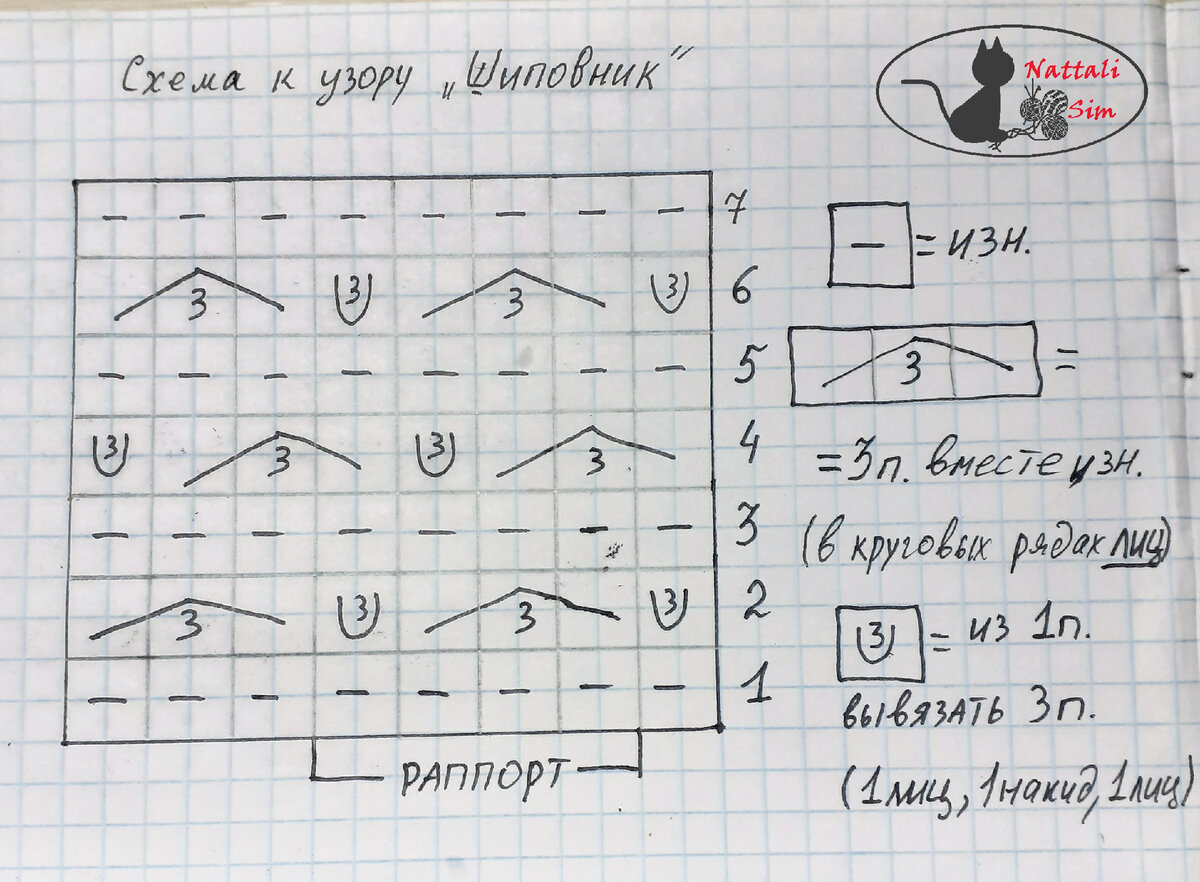 Схема к узору „Шиповник"
Nattali
Sim
— — — — — — — — 7
3 3 3 3 6
— — — — — — — — 5
3 3 3 3 4
— — — — — — — — 3
3 3 3 3 2
— — — — — — — — 1
РАППОРТ
— = изн.
3 =
= 3п. вместе изн.
(в круговых рядах лиц)
3 = из 1п.
вывязать 3п.
(1лиц, 1накид, 1лиц)